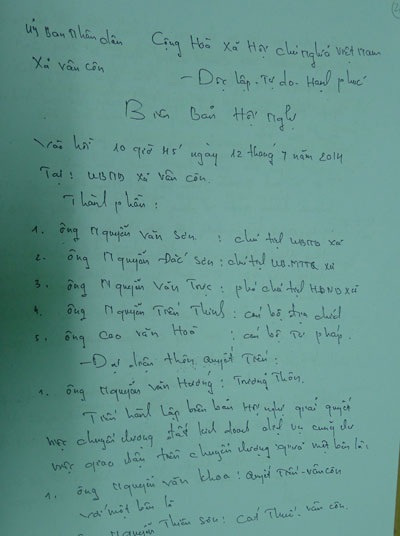 Uỷ Ban Nhân dân Cộng Hoà Xã Hội chủ nghĩa Việt Nam
Xã Vân Côn - Độc lập - Tự do - Hạnh phúc
Biên Bản Hội nghị
Vào hồi 10 giờ 45' ngày 12 tháng 7 năm 2014
Tại: UBND xã Vân Côn.
Thành phần:
1. ông Nguyễn Văn Sơn : chủ tịch UBND xã
2. ông Nguyễn Đắc Sơn : chủ tịch UB.MTTQ xã
3. ông Nguyễn Văn Trực : phó chủ tịch HĐND xã
4. ông Nguyễn Tiến Thịnh : cán bộ địa chính
5. ông Cao Văn Hoà : cán bộ Tư pháp.
- Đại diện thôn Quyết Tiến :
1. ông Nguyễn Văn Hương : Trưởng Thôn.
Tiến hành lập biên bản Hội nghị giải quyết
việc chuyển nhượng đất kinh doanh dịch vụ cũng như
việc giao dịch tiền chuyển nhượng giữa một bên là:
1. ông Nguyễn Văn Khoa : Quyết Tiến - Vân Côn
với một bên là
Nguyễn Thiên Sơn : Cát Thuế - Vân Côn.